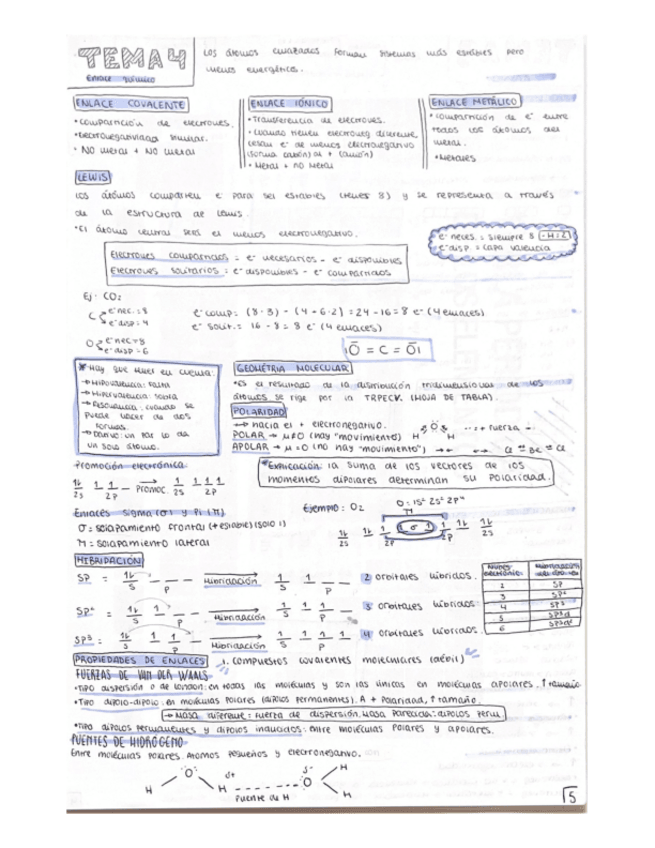 TEMA 4
Enlace químico
Los átomos enlazados forman sistemas más estables pero
menos energéticos.
ENLACE COVALENTE
• Compartición de electrones.
• Electronegatividad similar.
• NO metal + NO metal
ENLACE IÓNICO
• Transferencia de electrones.
• Cuando tienen electroneg diferente
ceden e⁻ de menos electronegativo
(forma catión) al + (anión)
• Metal + no metal
ENLACE METÁLICO
• Compartición de e⁻ entre
todos los átomos del
metal.
• Metales
LEWIS
Los átomos comparten e⁻ para ser estables (tener 8) y se representa a través
de la estructura de Lewis.
• El átomo central será el menos electronegativo.
e⁻ neces. = siempre 8 -H=2
e⁻ disp = capa valencia
Electrones compartidos = e⁻ necesarios - e⁻ disponibles
Electrones solitarios = e⁻ disponibles - e⁻ compartidos
Ej: CO₂
C e⁻ nec. = 8
e⁻ disp = 4
O e⁻ nec = 8
e⁻ disp = 6
e⁻ comp: (8·3) - (4+6·2) = 24-16 = 8 e⁻ (4 enlaces)
e⁻ solit. = 16-8 = 8 e⁻
O = C = O
* Hay que tener en cuenta:
→ Hipovalencia: falta
→ Hipervalencia: sobra
→ Resonancia: cuando se
puede hacer de dos
formas.
→ Dativo: un par lo da
un solo átomo.
GEOMETRÍA MOLECULAR
• Es el resultado de la distribución tridimensional de los
átomos se rige por la TRPECV. (HOJA DE TABLA).
POLARIDAD
→ hacia el + electronegativo.
POLAR → μ≠0 (hay "movimiento")
H O H
+ fuerza
APOLAR → μ=0 (no hay "movimiento") →← ←→ Cl Be Cl
*Explicación: la suma de los vectores de los
momentos dipolares determinan su polaridad.
Promoción electrónica
2s 2p promoc. 2s 2p
Enlaces sigma (σ) y Pi (π)
σ = solapamiento frontal (+estable) (solo 1)
π = solapamiento lateral
Ejemplo: O₂
O: 1s² 2s² 2p⁴
π
σ
2s 2p 2p 2s
HIBRIDACIÓN
SP = S P Hibridación S P 2 orbitales híbridos.
SP² = S P Hibridación S P 3 orbitales híbridos
SP³ = S P Hibridación S P 4 orbitales híbridos.
2 SP
3 SP²
4 SP³
5 SP³d
6 SP³d²
PROPIEDADES DE ENLACES
1. Compuestos covalentes moleculares (débil)
FUERZAS DE VAN DER WAALS
• Tipo dispersión o de London: en todas las moléculas y son las únicas en moléculas apolares. ↑ tamaño.
• Tipo dipolo-dipolo: en moléculas polares (dipolos permanentes). A + polaridad, ↑ tamaño.
→ Masa diferente: fuerza de dispersión. Masa parecida: dipolos perm
• Tipo dipolos permanentes y dipolos inducidos: entre moléculas polares y apolares.
PUENTES DE HIDRÓGENO
Entre moléculas polares. Átomos pequeños y electronegativo.
H O H δ+ δ- O H H
Puente de H
5